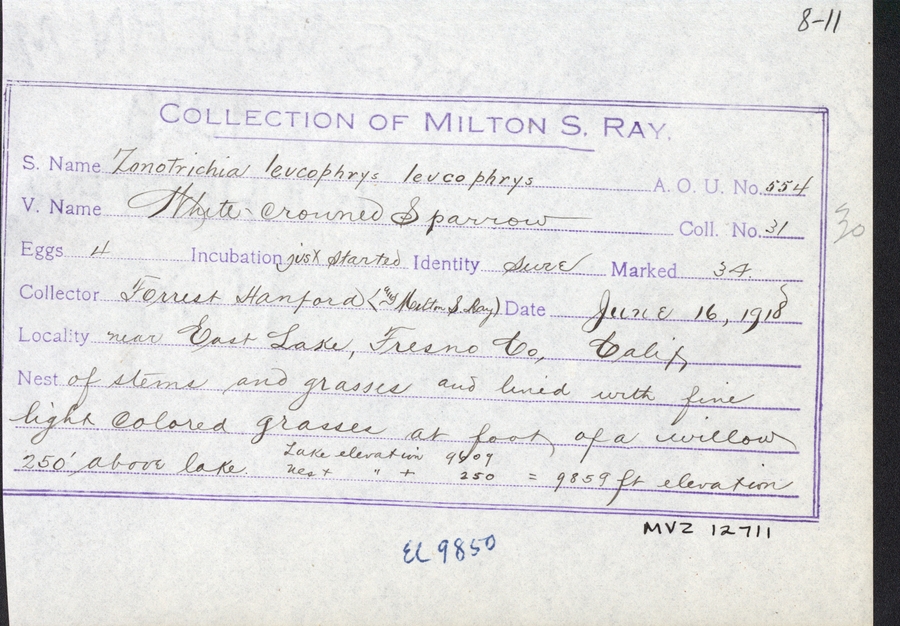 8-11
COLLECTION OF MILTON S. RAY.
S. Name Zonotrichia leucophrys leucophrys A. O. U. No. 554
V. Name White-crowned Sparrow Coll. No. 31
30
Eggs 4 Incubation just started Identity Sure Marked 34
Collector Forrest Hanford (and Milton S. Ray) Date June 16, 1918
Locality near East Lake, Fresno Co, Calif,
Nest of stems and grasses and lined with fine
light colored grasses at foot of a willow
250' above lake. Lake elevation 9609
nest " + 250 = 9859 ft elevation
MVZ 12711
EL 9850